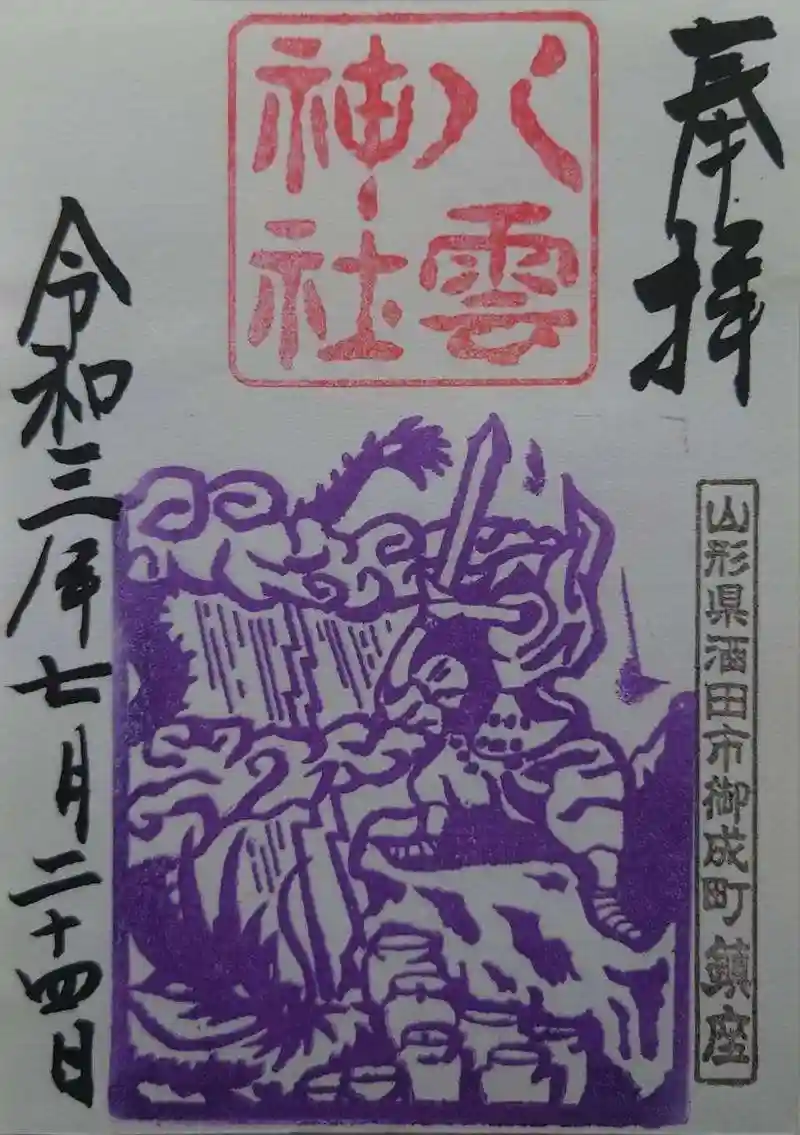 奉拝
八雲
神社
山形県酒田市御成町鎮座
令和三年七月二十四日